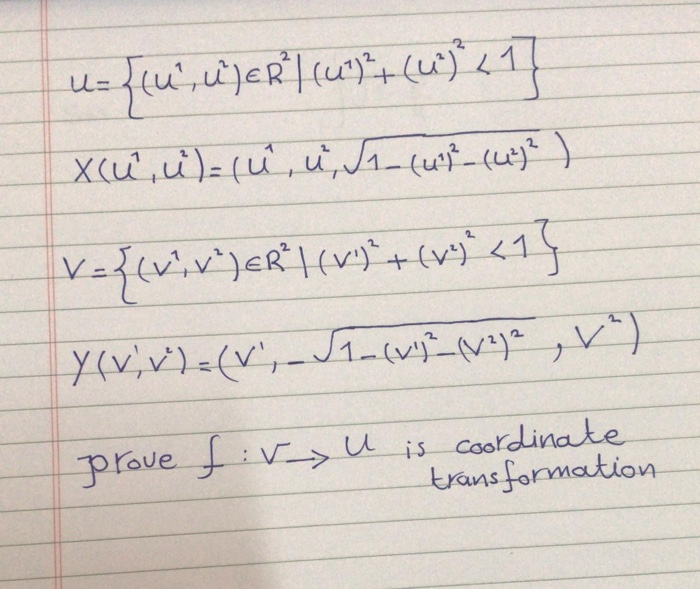 u = {(u¹, u²) ∈ R² | (u¹)² + (u²)² < 1}
X(u¹, u²) = (u¹, u², √(1 - (u¹)² - (u²)²))
V = {(v¹, v²) ∈ R² | (v¹)² + (v²)² < 1}
Y(v¹, v²) = (v¹, -√(1 - (v¹)² - (v²)²), v²)
prove f : V → U is coordinate
transformation